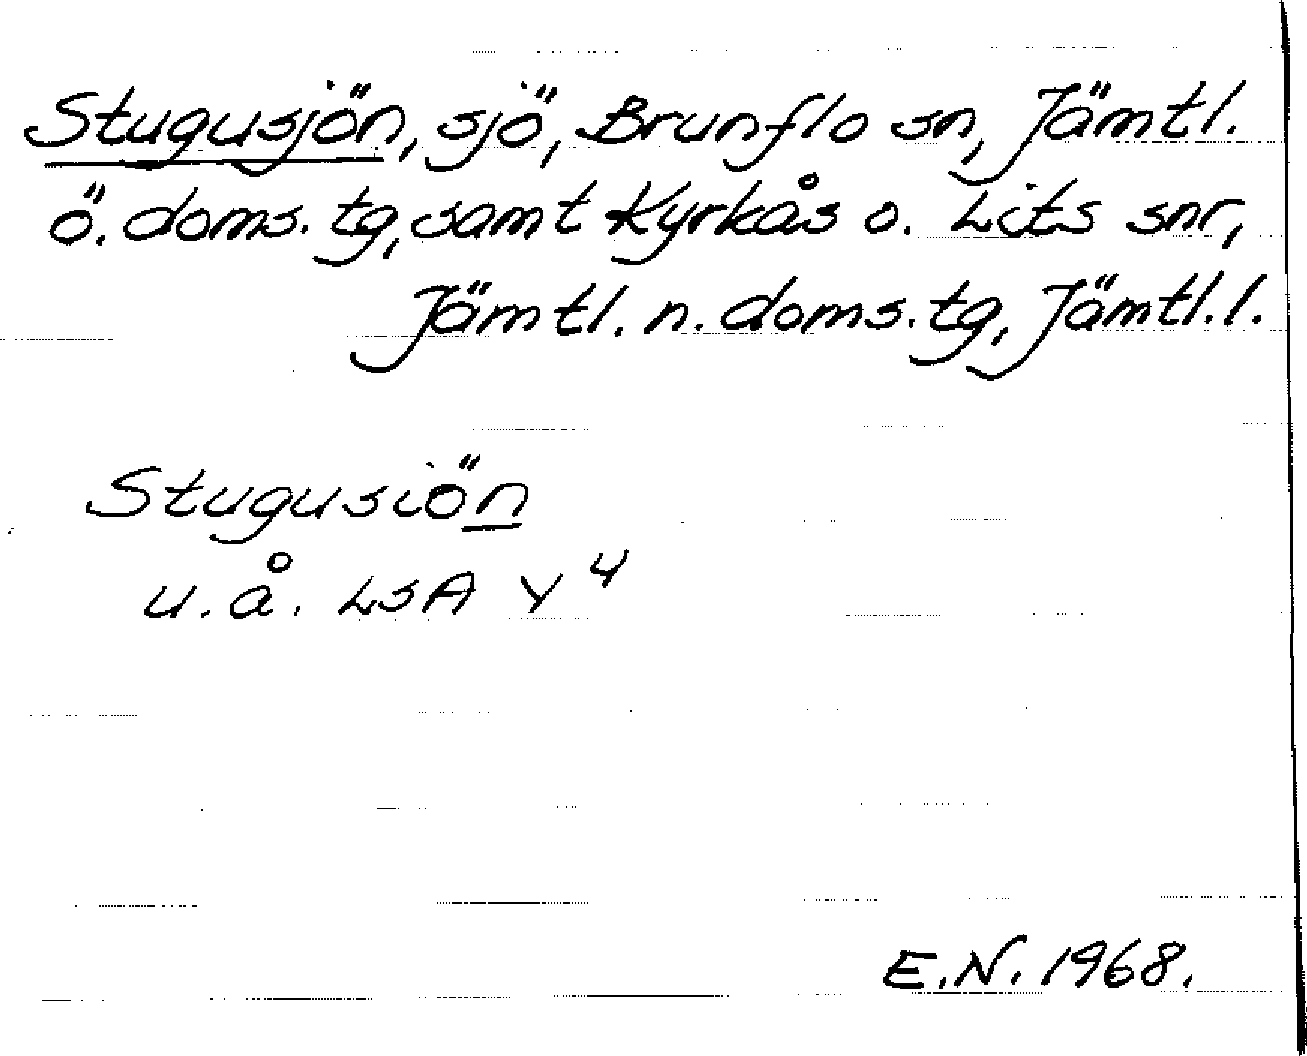 Stugusjön, sjö, Brunflo sn, Jämtl.
ö. doms. tg, samt Kyrkås o. Lits snr,
Jämtl. n. doms. tg, Jämtl. l.
Stugusiön
u. å. LSA Y 4
E.N. 1968.